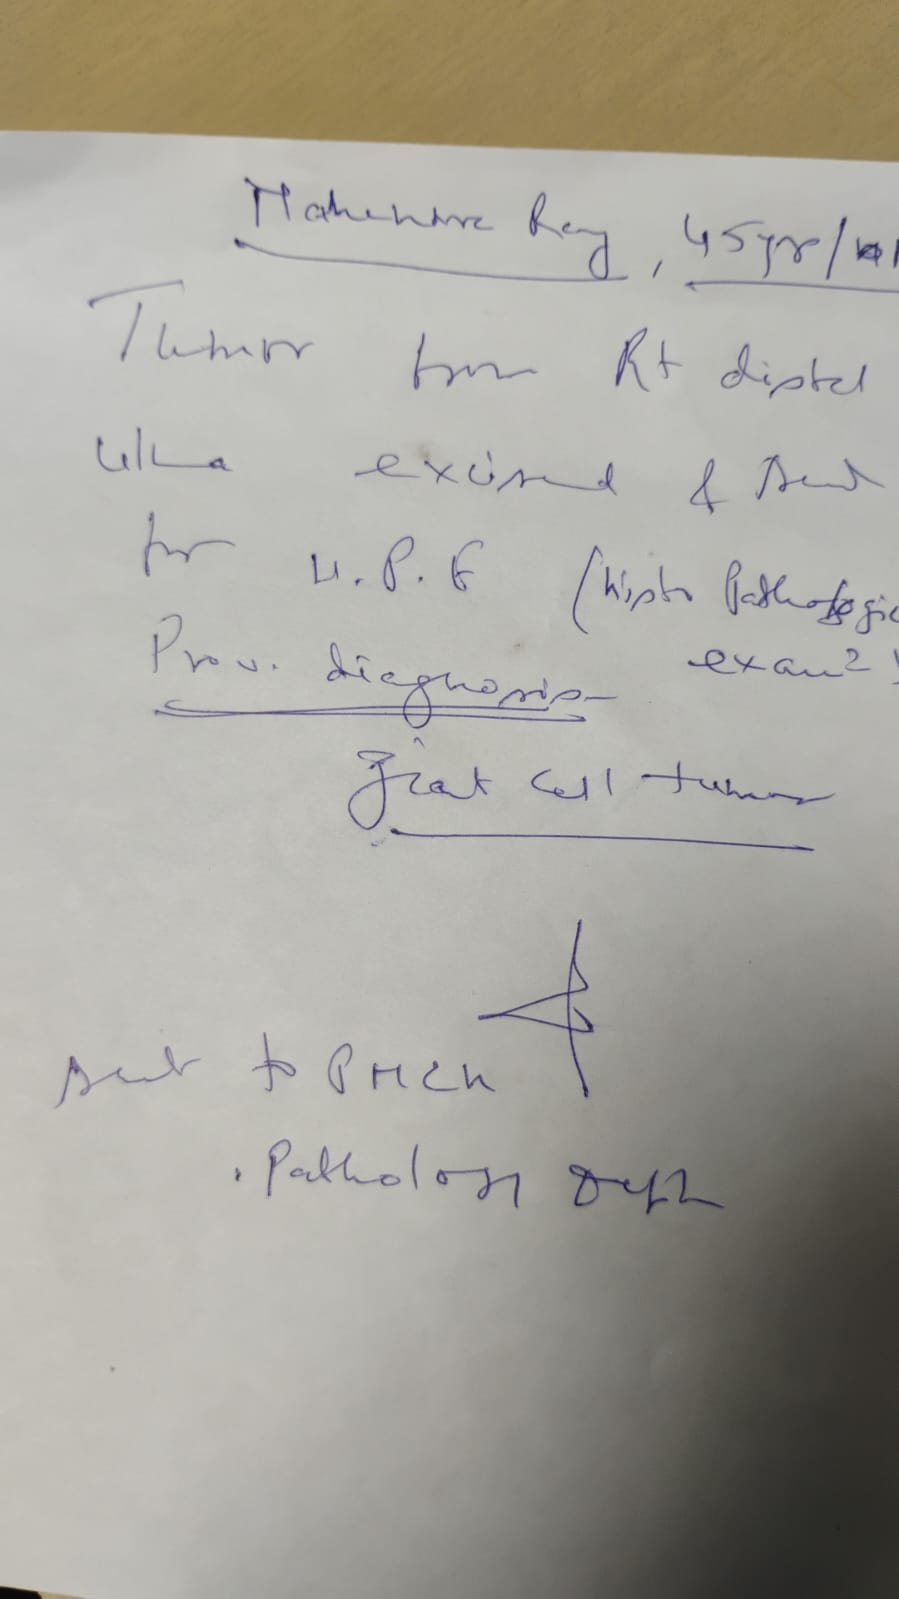 Mahendra Ray, 45yrs/M
Tumor from Rt distal
Ulna excised & sent
for H.P.E (histo Pathologic
Prov. diagnosis- exam²
giant cell tumor
sent to PMCH
. Pathology Deptt